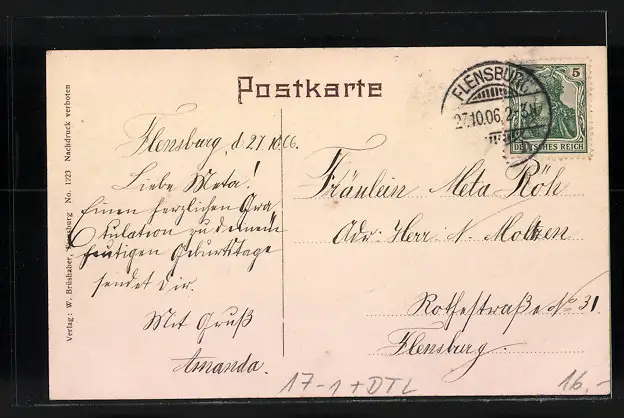 Postkarte
FLENSBURG
27.10.06. 2-3N.
5
DEUTSCHES REICH
Flensburg, d 27.10.06.
Liebe Meta!
Einen herzlichen Gra
tulation zu deinem
heutigen Geburtstage
sendet Dir.
Mit Gruß
Amanda.
Fräulein Meta Röh
Adr. Herr N. Moltzen
Rothestraße No 31
Flensburg.
Verlag: W. Brüshaber, Flensburg No. 1223 Nachdruck verboten
17-1+DTL
16,-